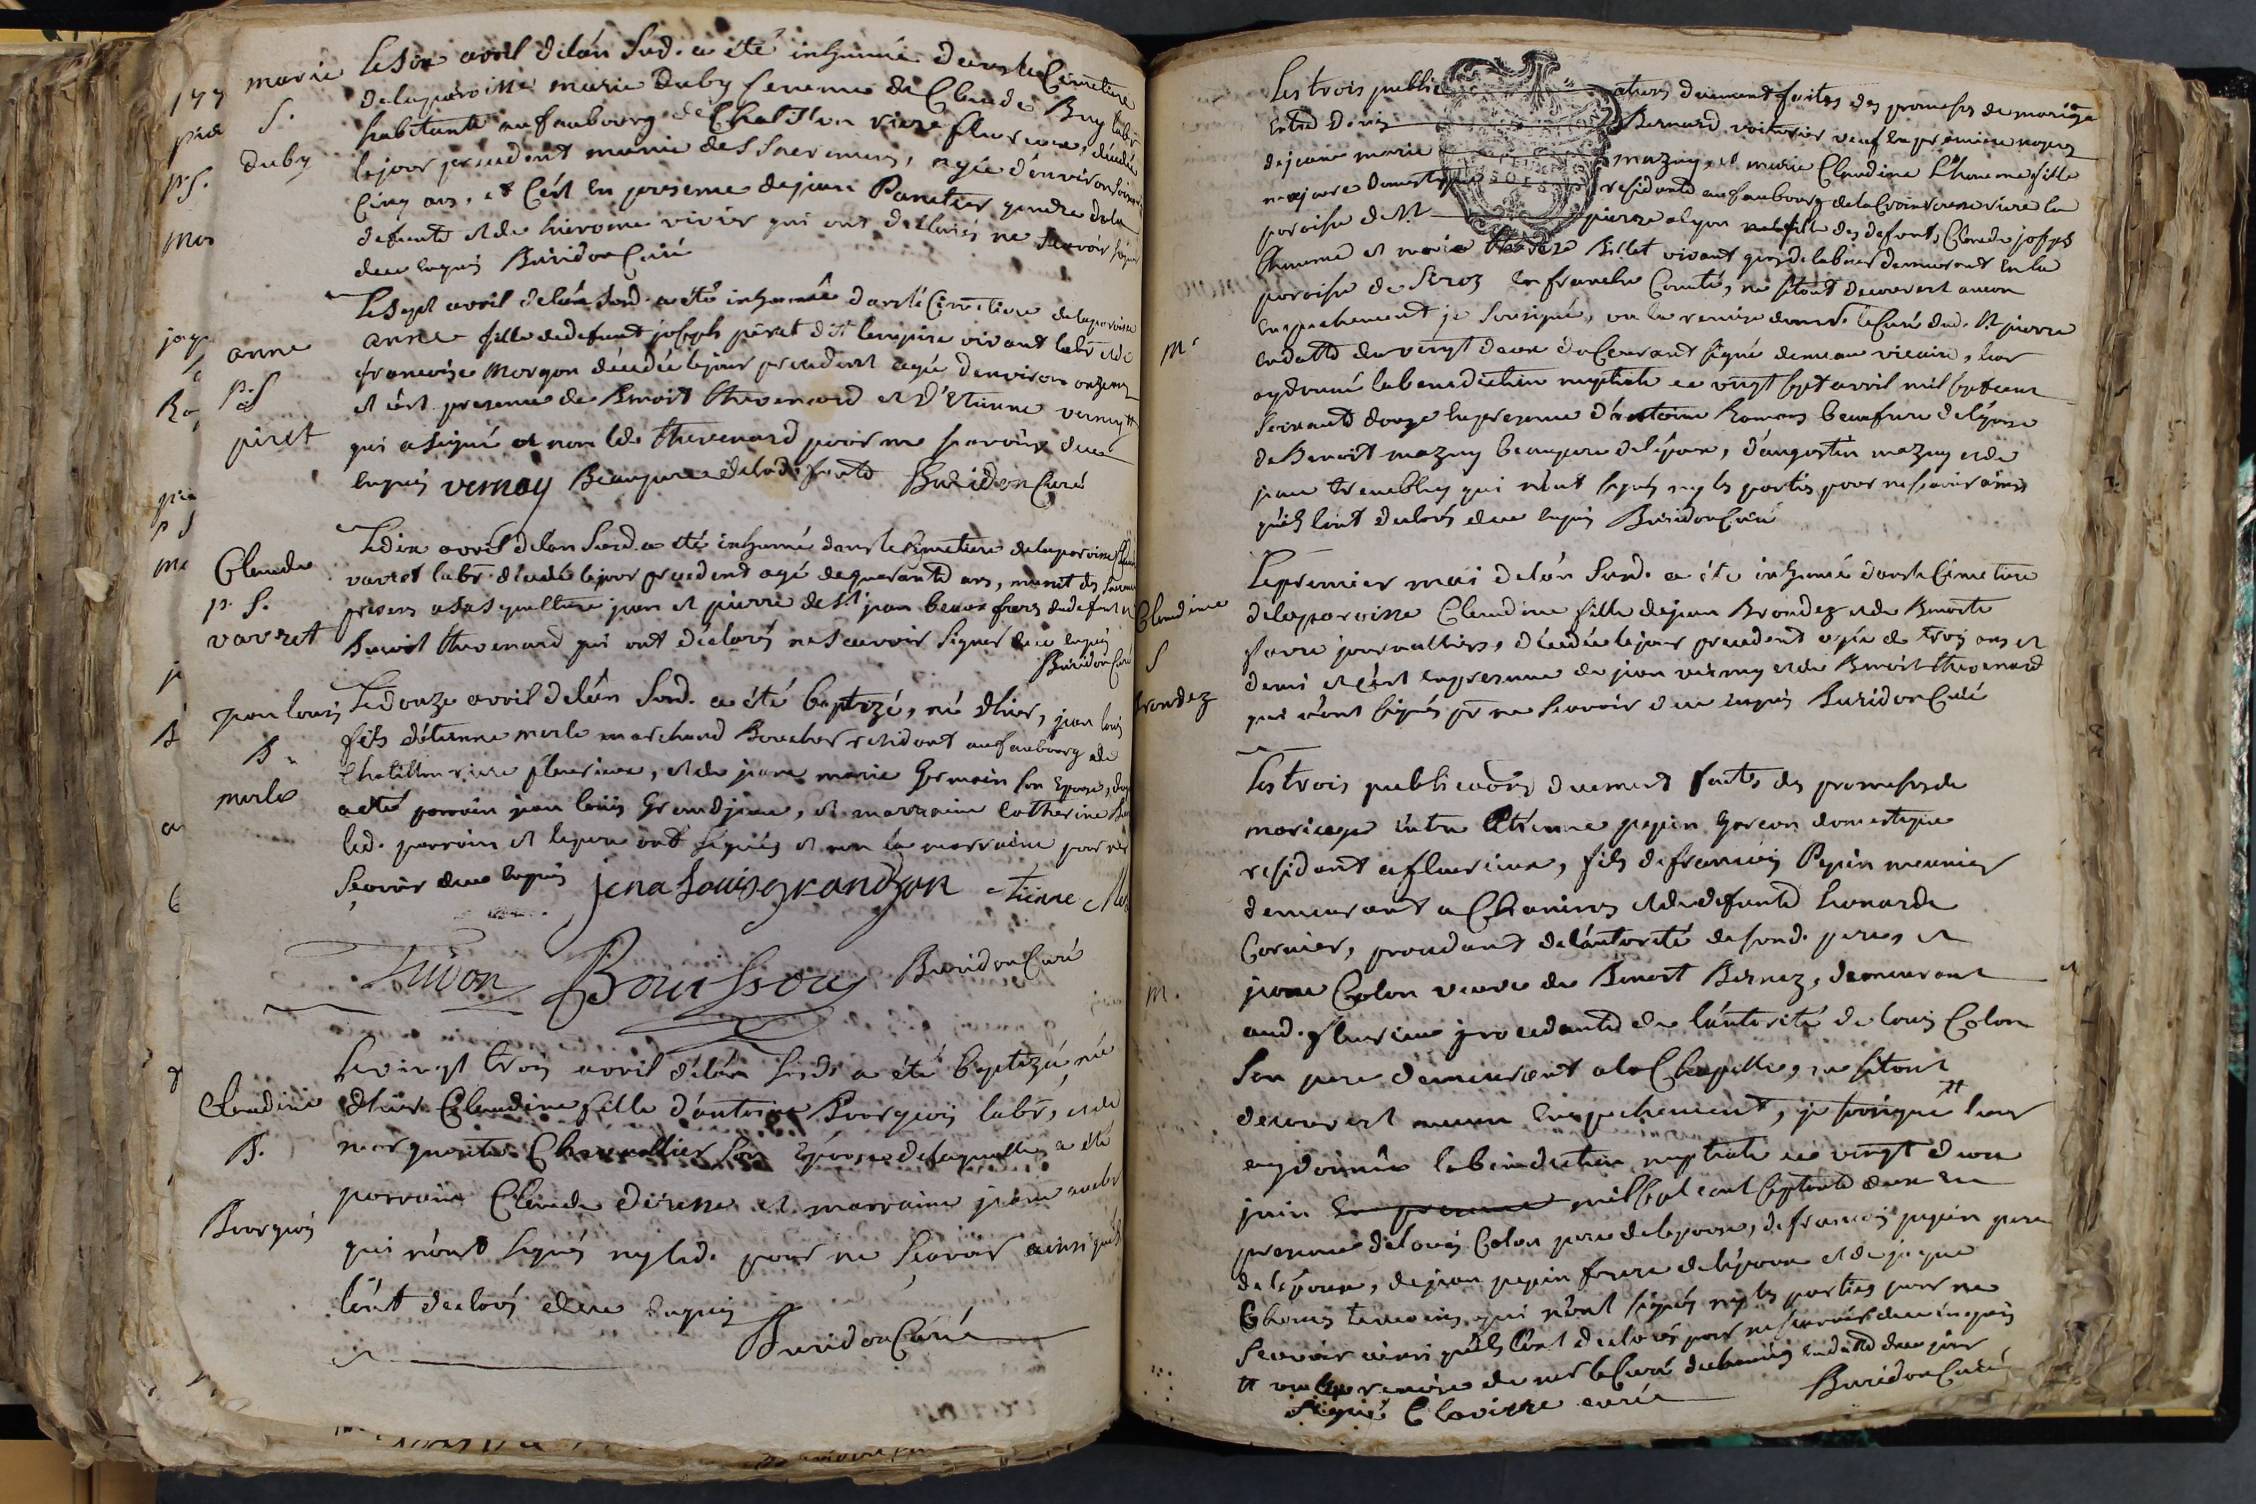 marie
S.
Duby
Le six avril de l'an susd. a été inhumée dans le Cimetiere
de la paroisse marie Duby femme de Claude Buy labr
habitante au faubourg de Chatillon riere fleurieux, décédée
le jour precedent munie des Sacremens, agée d'environ
Cinq ans, et C'est en presence de jean Panetier gendre de la
defunte et de hierome vivier qui ont declarés ne scavoir signer
de ce enquis Buridon Curé
anne
p. S
piret
Le sept avril de l'an susd. a été inhumée dans le Cimetiere de la paroisse
anne fille de defunt joseph piret dit lempire vivant labr et de
francoise Morgon décédée le jour precedent agée d'environ onze ans
et c'est presence de Benoit thevenard et d'Etienne vernay
qui a signé et non led. thevenard pour ne scavoir de ce
enquis vernay Beaupere de lad. defunte Buridon Curé
Claude
p. S.
vavret
Le dix avril de l'an susd. a été inhumé dans le Cimetiere de la paroisse Claude
vavret labr décédé le jour precedent agé de quarante ans, munit des Sacremens
presens a sa sepulture jean et pierre de St jean beaux freres du defunt et
Benoit thevenard qui ont déclarés ne scavoir signer de ce enquis
Buridon Curé
jean louis
B.
merle
Le douze avril de l'an susd. a été baptizé, né d'hier, jean louis
fils d'étienne merle marchand Boucher residant au faubourg de
Chatillon riere fleurieux, et de jeane marie Germain son Epouse,
a été parrain jean louis Grandjean, et marraine Catherine
led. parrain et le pere ont signés et non la marraine pour ne
scavoir de ce enquis jena Louis grandjan etienne
Buisson Buridon Curé
Claudine
B.
Bourgeois
Le vingt trois avril de l'an susd. a été baptizée, née
d'hier Claudine fille d'antoine Bourgeois labr, et de
marguerite Chevallier son Epouse de laquelle a été
parrain Claude et marraine jeane
qui n'ont signés ny led. pour ne scavoir ainsi qu'ils
l'ont declaré de ce enquis
Buridon Curé
Les trois publications duement faites des promesses de mariage
entre Denis Bernard voiturier veuf en premiere noces
de jeane marie mazuy, et marie Claudine thevenne fille
majeure Domestique residante au faubourg de la Croix rousse riere la
paroisse de St pierre a lyon fille des defunts Claude joseph
thevenne et marie therese Billet vivant demeurant en la
paroisse de Siroz en franche Comté, ne s'etant decouvert aucun
empechement je soussigné, vu la remise de mr. le Curé dud. St pierre
en datte du vingt deux du Courant signé demeau vicaire, leur
ay donné la benediction nuptiale ce vingt sept avril mil sept cent
soixante douze en presence d'antoine Romans beaufrere de l'épouse
de Benoit mazuy beaupere de l'époux, d'augustin mazuy et de
jean trembley qui n'ont signés ny les parties pour ne scavoir ainsi
qu'ils l'ont declarés de ce enquis Buridon Curé
Claudine
S
Brondez
Le premier mai de l'an susd. a été inhumée dans le Cimetiere
de la paroisse Claudine fille de jean Brondez et de Benoite
favre journalliers, décédée le jour precedent agée de trois ans et
demi et c'est en presence de jean vernay et de Benoit thevenard
qui n'ont signés pr ne scavoir de ce enquis Buridon Curé
m.
Les trois publications duement faites des promesses de
mariage entre Etienne pepin garçon domestique
residant a fleurieux, fils de francois Pepin meunier
demeurant a Chaneins et de defunte Leonarde
Cornier, procedant de l'autorité de sond. pere, et
jeane Colon veuve de Benoit Bernez, demeurant
aud. fleurieux procedante de l'autorité de louis Colon
son pere demeurant a la Chapelle, ne s'etant
decouvert aucun empechement, je soussigné # leur
ay donné la benediction nuptiale ce vingt deux
juin mil sept cent septante deux en
presence de louis Colon pere de l'epouse, de francois pepin pere
de l'époux, de jean pepin frere de l'époux et de jaque
temoins qui n'ont signés ny les parties pour ne
scavoir ainsi qu'ils l'ont declarés pour ne scavoir de ce enquis
# vu la remise de mr le Curé de Chaneins en datte de ce jour
signé Clavierre curé Buridon Curé